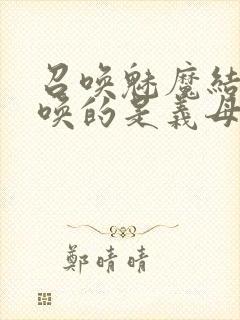 召唤魅魔结
唤的是義母
鄭晴晴